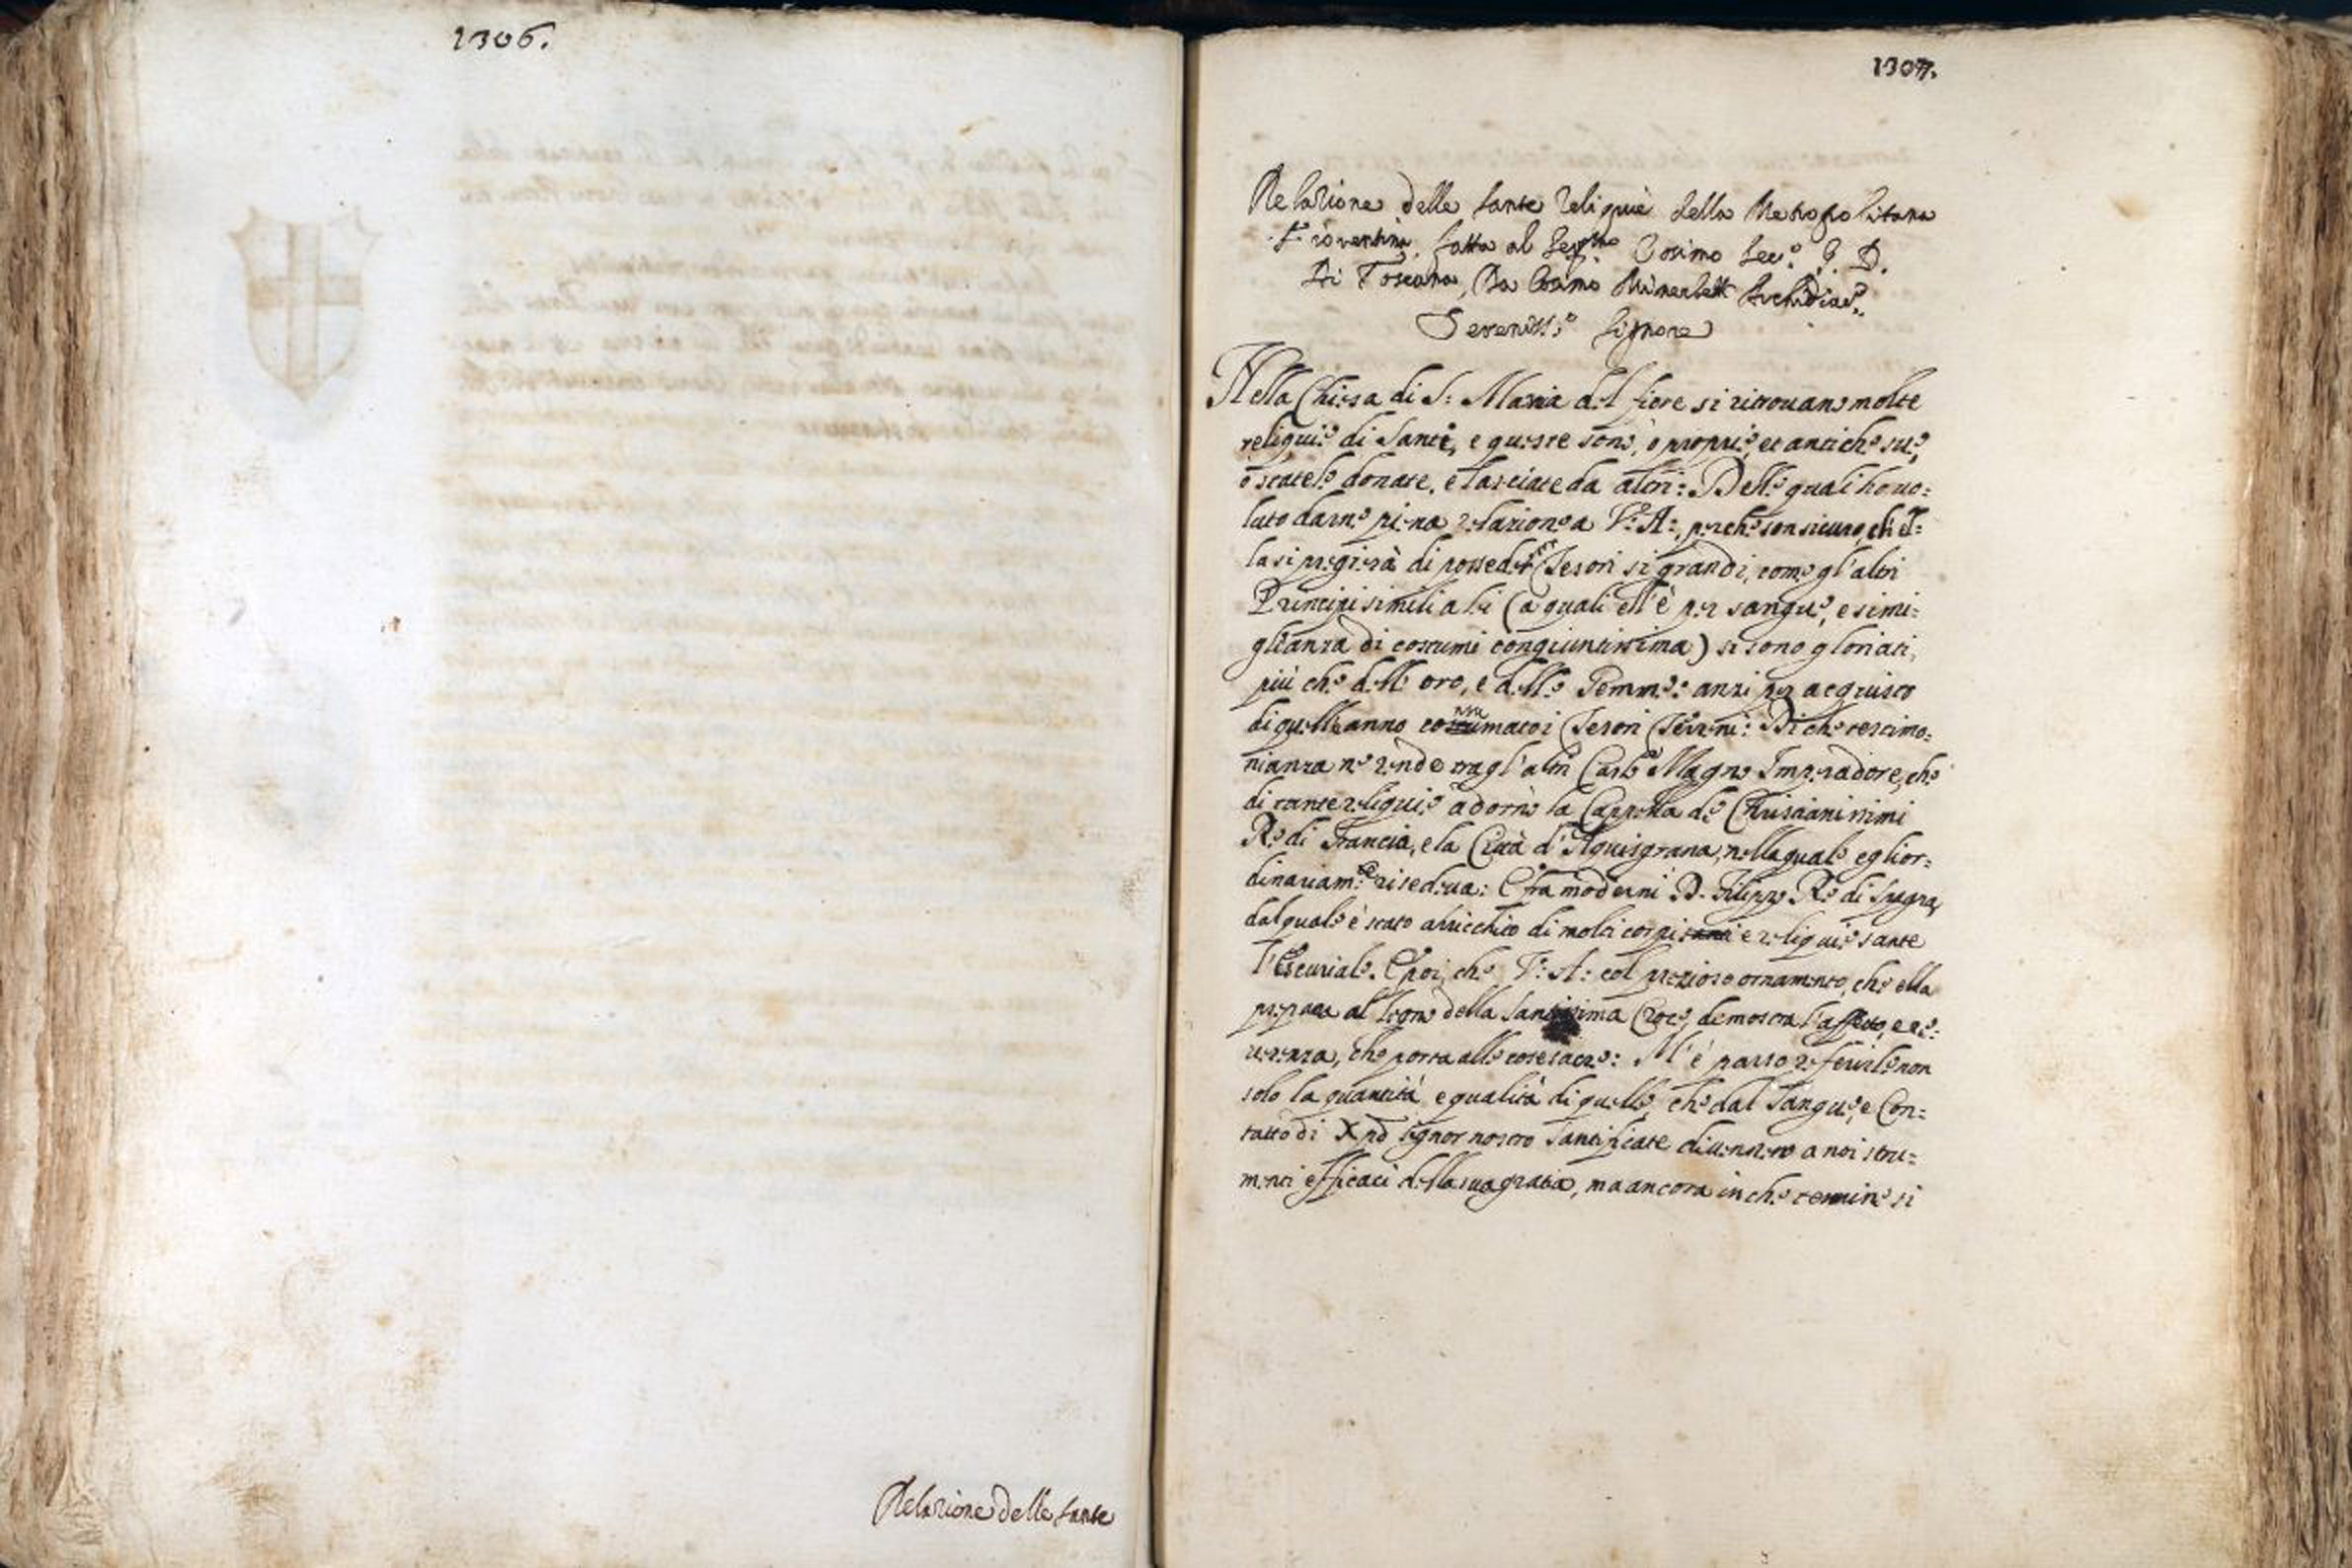 1306.
Relazione delle sante
1307.
Relazione delle sante reliquie della Metropolitana
Fiorentina, fatta al Ser.mo Cosimo Sec.o G. D.
Di Toscana, Da Cosimo Minerbetti Archidiac.o
Sereniss.o Signore
Nella Chiesa di S: Maria del fiore si ritrovano molte
reliquie di Santi, e queste sono, o proprie, et antiche sue,
o statele donate, e lasciate da altri: Delle quali ho uo:
luto darne piena relazione a V: A:, perche son sicuro, ch'el:
la si pregierà di possedere Tesori si grandi, come gl'altri
Principi simili a lei (a quali ell'è per sangue, e simi:
glianza di costumi congiuntissima) si sono gloriati,
più che dell' oro, e delle Gemme: anzi per acquisto
di quelle anno consumato i Tesori Terreni: Di che testimo:
nianza ne rende tra gl'altri Carlo Magno Imperadore, che
di tante reliquie adornò la Cappella de Christianissimi
Re di Francia, e la Città d'Aquisgrana, nella quale egli or:
dinariam:te risedeua: E fra moderni D. Filippo Re di Spagna,
dal quale è stato arricchito di molti corpi santi e reliquie sante
l'Escuriale. E poi che V: A: col prezioso ornamento, che ella
prepara al legno della Santissima Croce, demostra l'affetto, e re:
uerenza, che porta alle cose sacre: M'è parso referirle non
solo la quantità, e qualità di quelle, che dal Sangue, e Con:
tatto di Xp̄o signor nostro Santificate diuennero a noi stru:
menti efficaci della sua gratia, ma ancora in che termine si